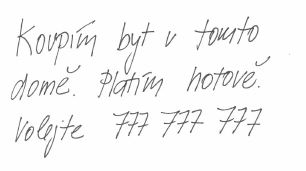 Koupím byt v tomto
domě. Platím hotově.
Volejte 777 777 777